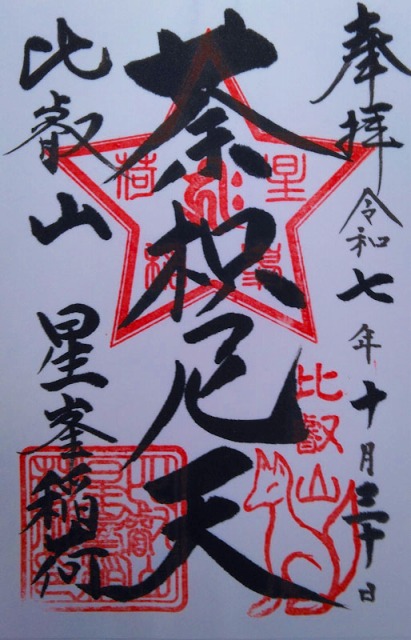 奉拝
令和七年十月三十日
荼枳尼天
比叡山 星峯稲荷
星峯稲荷
比叡山